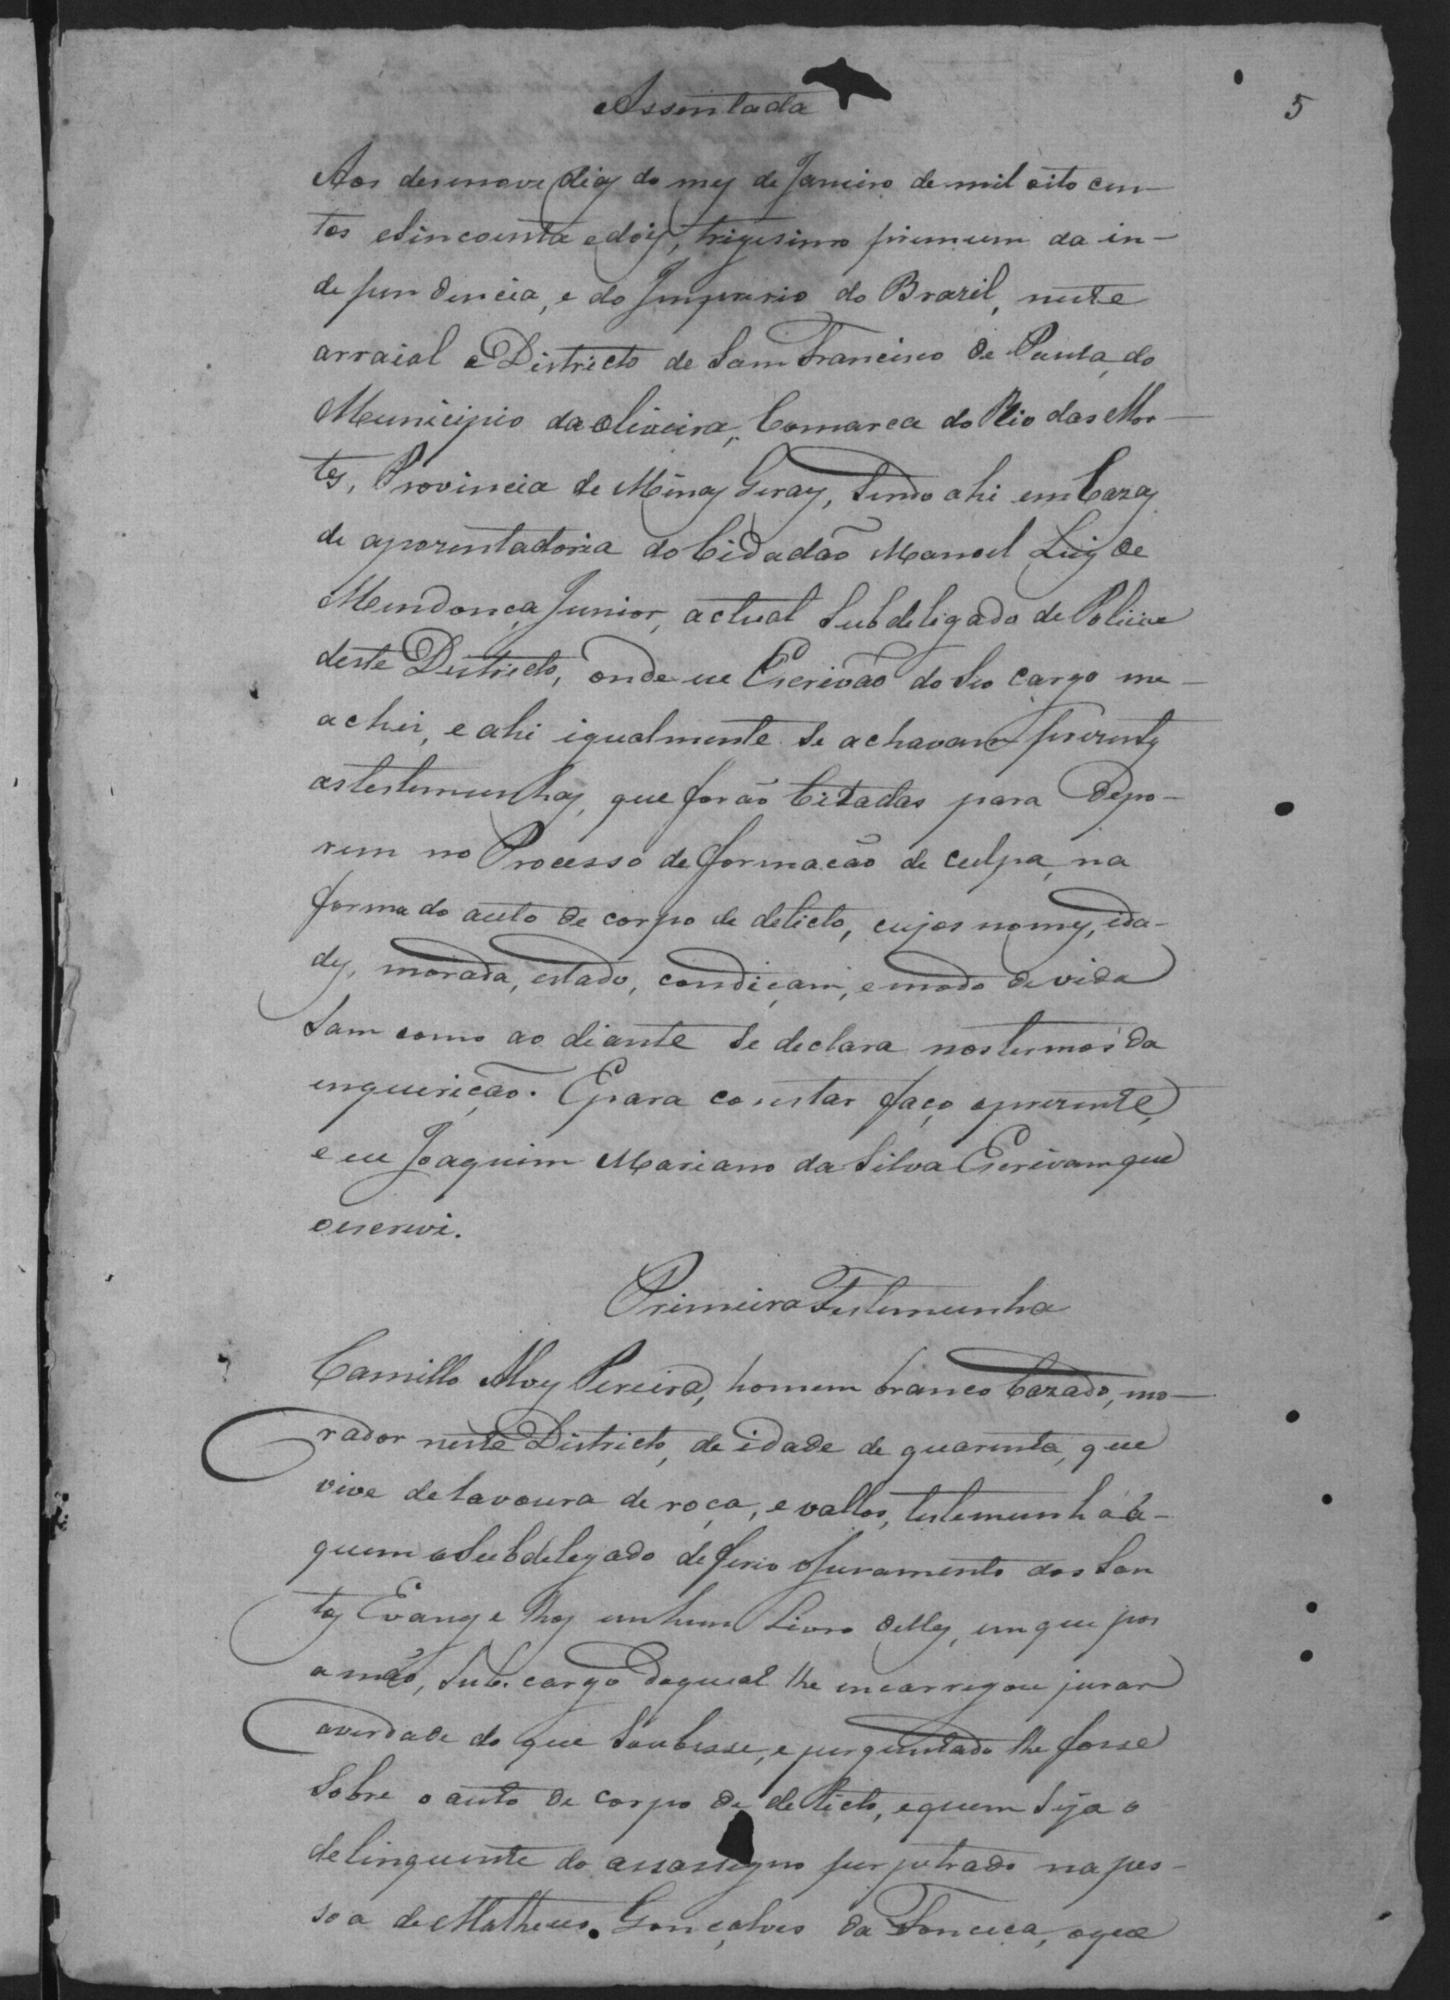 Assentada
5
Aos desenove dias do mes de Janeiro de mil oito cen-
tos e Sincoenta e dois, trigesimo primeiro da in-
dependencia, e do Imperio do Brazil, neste
arraial e Districto de Sam Francisco de Paula, do
Municipio da Oliveira, Comarca do Rio das Mor-
tes, Provincia de Minas Geraes, Sendo ahi em Cazas
de aposentadoria do Cidadão Manoel Luis de
Mendonça Junior, actual Subdelegado de Policia
deste Districto, onde eu Escrivão do Seo cargo me
achei, e ahi igualmente se achavam prezentes
as testemunhas, que forão Citadas para depo-
rem no Processo de formação de culpa, na
forma do auto de corpo de delicto, cujos nomes, ida-
des, morada, estado, condiçam, e modo de vida
Sam como ao diante Se declara nos termos da
inquirição. E para constar faço o prezente,
e eu Joaquim Mariano da Silva Escrivam que
o escrevi.
Primeira Testemunha
Camillo Alves Pereira, homem branco Cazado, mo-
rador neste Districto, de idade de quarenta, que
vive de lavoura de roça, e vallos, testemunha a
quem o Subdelegado deferio o juramento dos San
tos Evangelhos em hum Livro delles, em que pos
a mão, Sub. cargo do qual lhe encarregou jurar
a verdade do que Soubesse, e perguntado lhe fosse
Sobre o auto de corpo de delicto, e quem Seja o
delinquente do assassigno perpetrado na pes-
soa de Matheus Gonçalves da Fonceca, o que